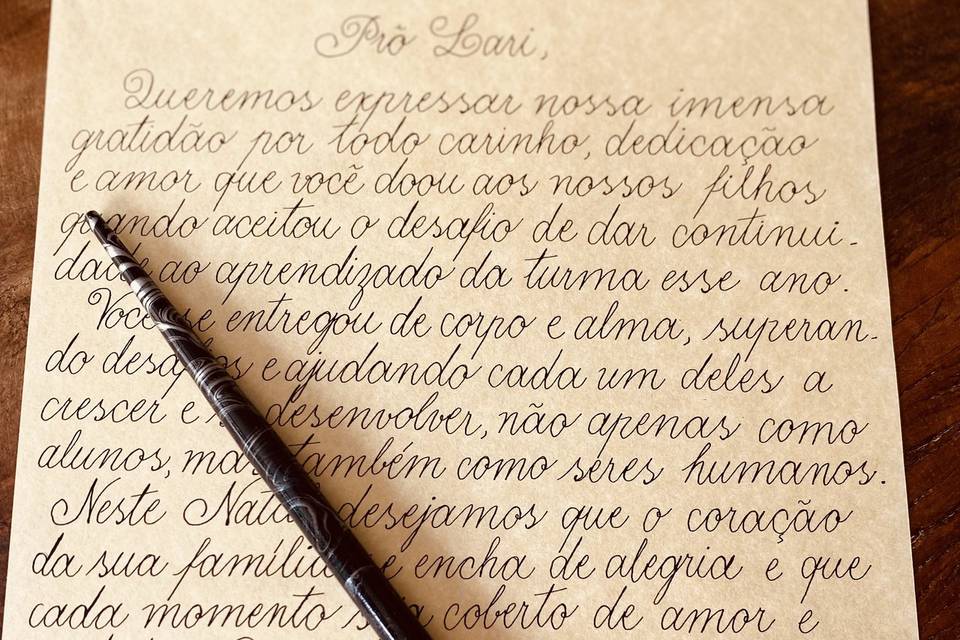 Prô Lari,
Queremos expressar nossa imensa
gratidão por todo carinho, dedicação
e amor que você doou aos nossos filhos
quando aceitou o desafio de dar continui-
dade ao aprendizado da turma esse ano.
Você se entregou de corpo e alma, superan-
do desafios e ajudando cada um deles a
crescer e se desenvolver, não apenas como
alunos, mas também como seres humanos.
Neste Natal desejamos que o coração
da sua família se encha de alegria e que
cada momento seja coberto de amor e